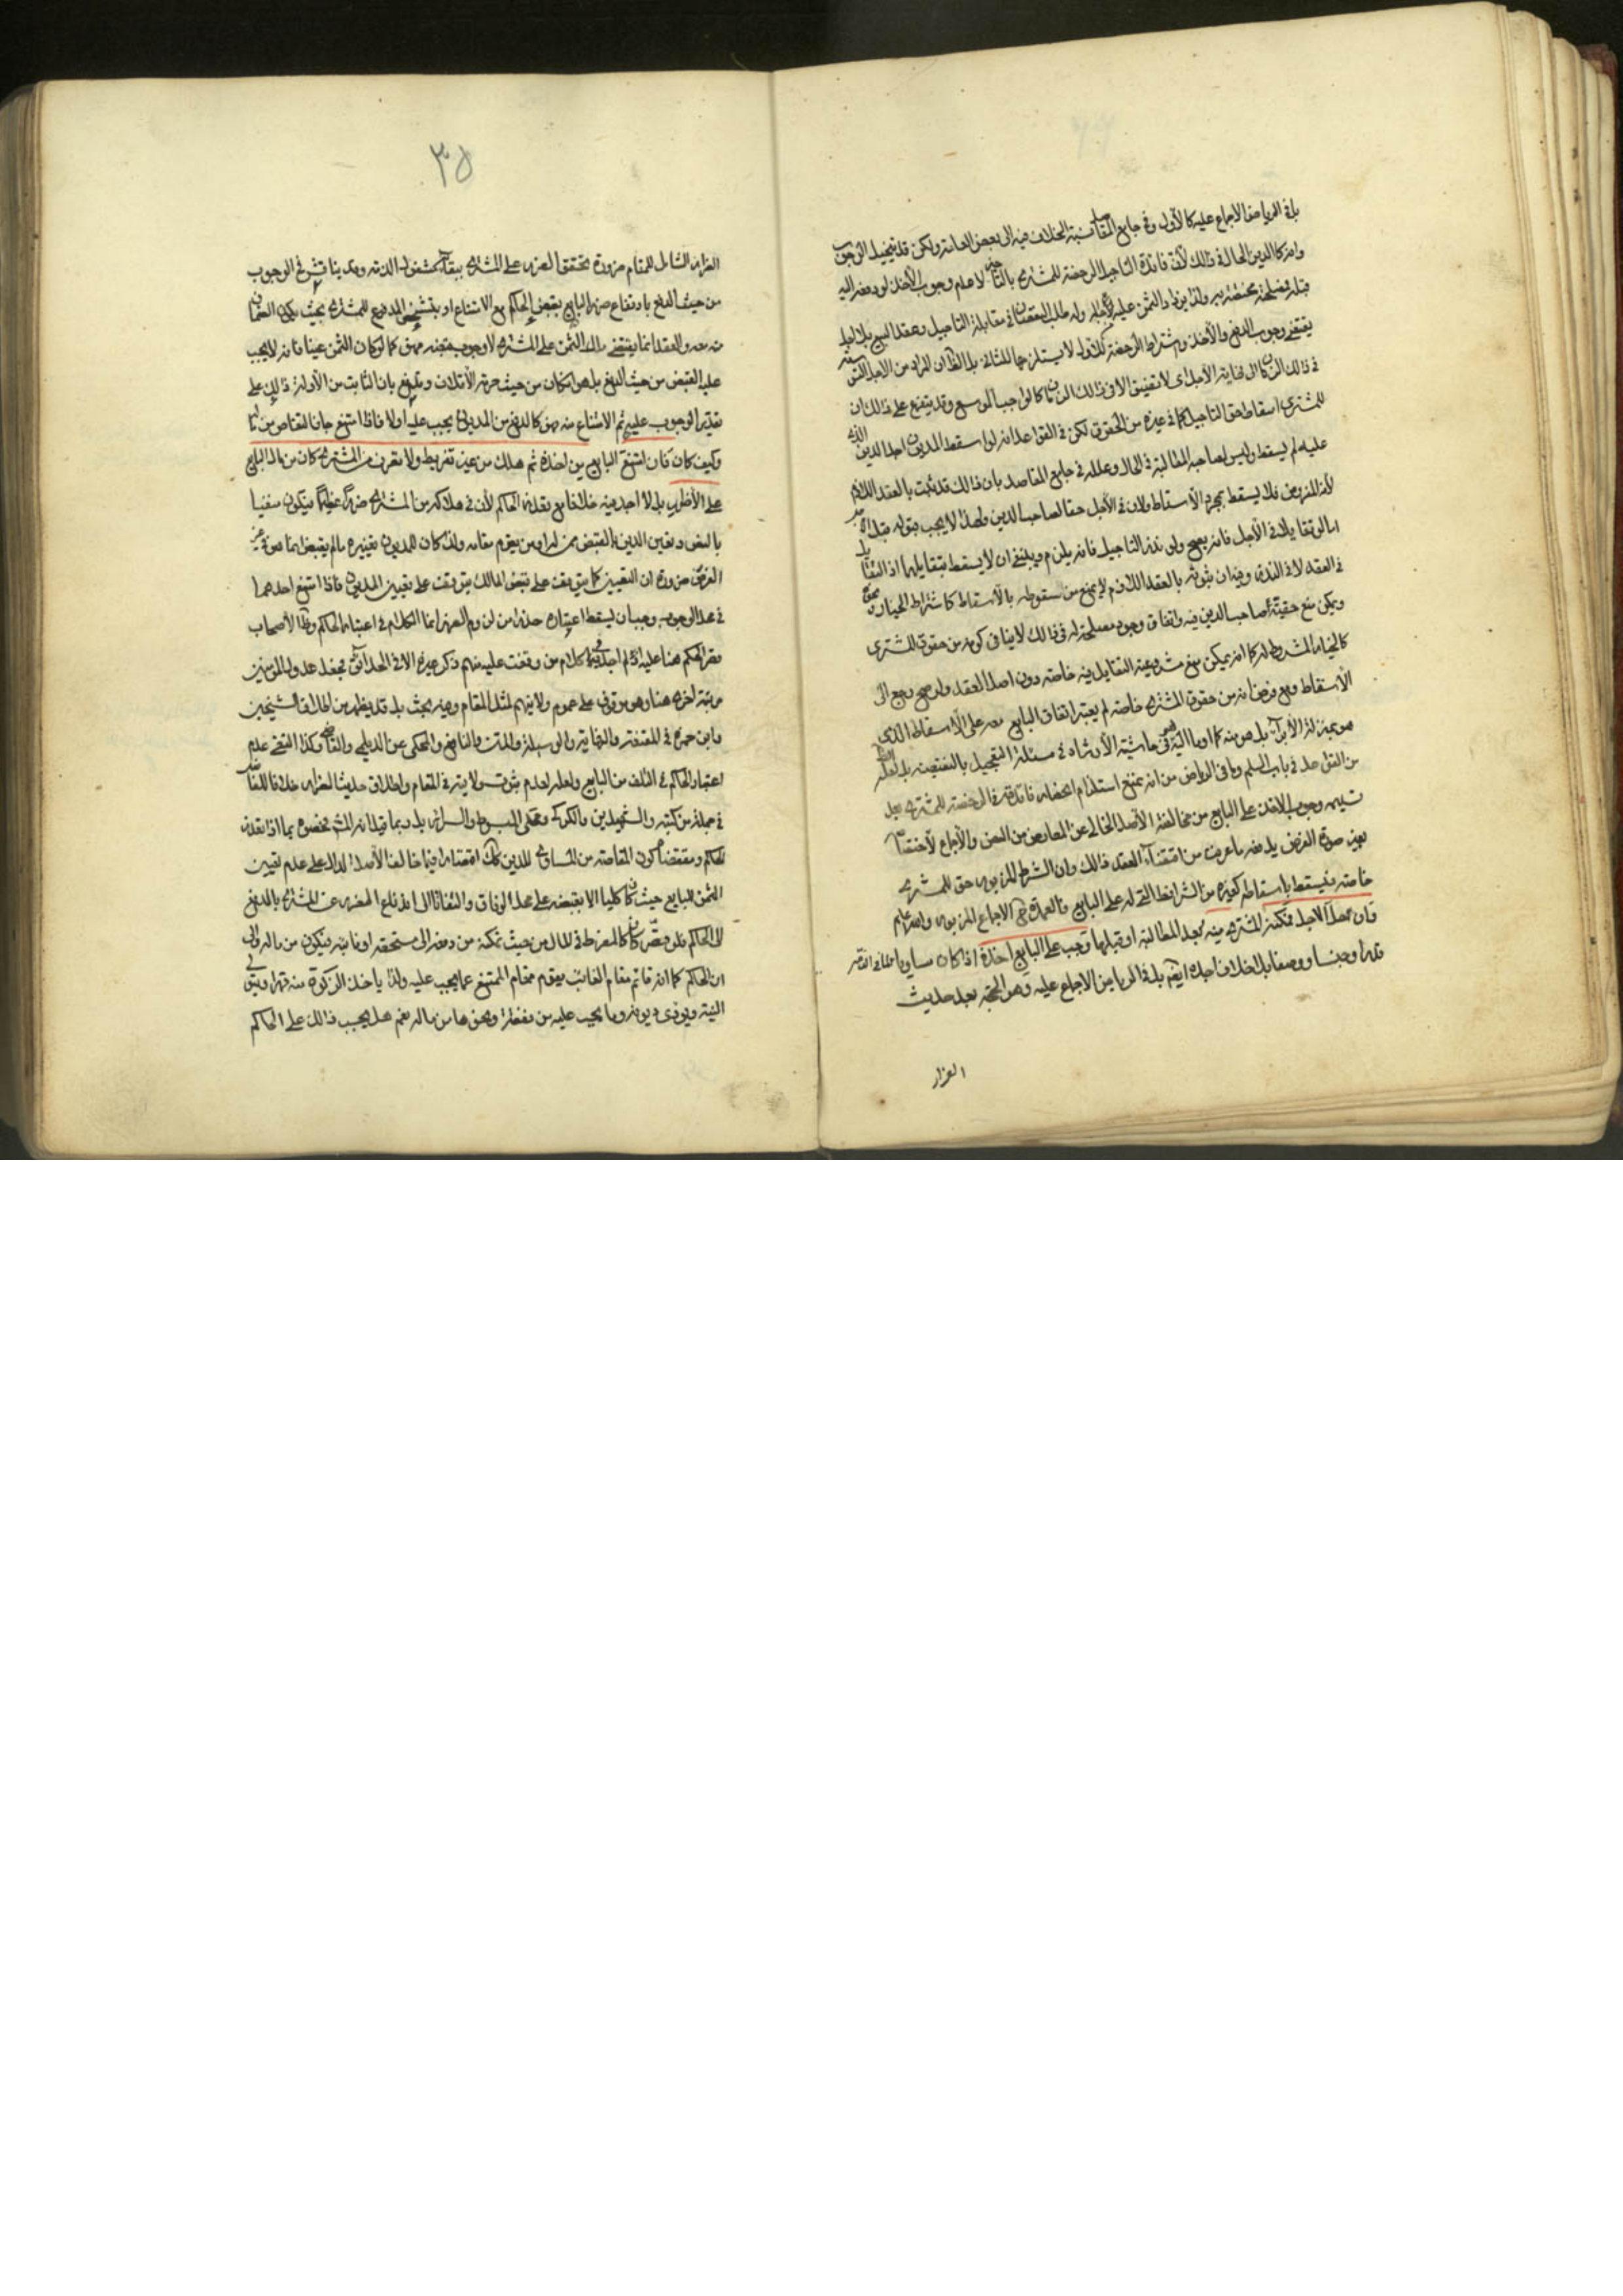 بل في الرياض الاجماع عليه كالأول وفي جامع المقاصد نسبة الخلاف فيه الى بعض العامة ولكن قد يتخيل الوجوب
وانه كالدين الحال في ذلك لأن فائدة التأجيل الرخصة للمشتري بالتأخير لا عدم وجوب الأخذ لو دفعه اليه
قبله فمصلحته مختصة به ولذا يزاد الثمن عليه لأجله وله طلب النقصان في مقابلة التأجيل وعقد البيع بل لعله
يقتضي وجوب الدفع والأخذ واشتراط الرخصة للأول لا يستلزمها للثاني بل الظاهر ان المراد من الاجل التوسعة
في ذلك الزمان الى نهاية الاجل اي لا تضييق الا في ذلك الزمان كالواجب الموسع وقد يتفرع على ذلك ان
للمشتري اسقاط حق التأجيل كما في غيره من الحقوق لكن في القواعد انه لو اسقط المديون اجل الدين الذي
عليه لم يسقط وليس لصاحبه المطالبة في الحال وعلله في جامع المقاصد بان ذلك قد ثبت بالعقد اللازم
لأنه المفروض فلا يسقط بمجرد الاسقاط ولان في الأجل حقا لصاحب الدين ولهذا لا يجب قبوله قبل الاجل
اما لو تقايلا في الأجل فانه يصح ولو نذر التأجيل فانه يلزم وينبغي ان لا يسقط بتقايلهما اذ التقايل
في العقد لا في النذر وفيه ان ثبوته بالعقد اللازم لا يمنع من سقوطه بالاسقاط كاشتراط الخيار
ويمكن منع حقية صاحب الدين فيه واتفاق وجود مصلحة له في ذلك لا ينافي كونه من حقوق المشتري
كالخيار المشروط له كما انه يمكن منع مشروعية التقايل فيه خاصة دون اصل العقد ولو صح رجع الى
الاسقاط ومع فرض انه من حقوق المشتري خاصة لم يعتبر اتفاق البايع معه على الاسقاط الذي
هو بمنزلة الأبراء بل هو منه كما اومأ اليه في حاشية الأرشاد في مسئلة التعجيل بالنقيصة بل لعله
من القول به في باب السلم وما في الرياض من انه بمنع استلزام انحصار فائدة الرخصة للمشتري بعد
تسليمه وجوب الاخذ على البايع من مخالفته الأصل الخالي عن المعارض من النص والأجماع لأختصاصه
بغير صورة الفرض يدفعه ما عرفت من اقتضاء العقد ذلك وان الشرط المزبور حق للمشتري
خاصة فيسقط باسقاطه كغيره من الشرائط التي له على البايع فالعمدة هي الاجماع المزبور والله اعلم
فان حل الاجل فمكنه المشتري منه بعد المطالبة او قبلها وجب على البايع اخذه اذا كان مساويا لما في الذمة
قدرا وجنسا ووصفا بلا خلاف اجده ايضا بل في الرياض الاجماع عليه وهو الحجة بعد حديث
الضرار
٣٥
الضرار الشامل للمقام ضرورة تحقق الضرر على المشتري ببقائه مشغول الذمة وقد يناقش في الوجوب
من حيث الدفع بارتفاع ضرر البايع بقبض الحاكم مع الامتناع او بتشخص المدفوع للمشتري بحيث يكون الضمان
منه بعد والعقد انما يقتضي ملك الثمن على المشتري لا وجوب قبضه منه كما لو كان الثمن عينا فانه لا يجب
عليه القبض من حيث البيع بل هو ان كان من حيث حرمة الأتلاف ويدفع بان الثابت من الأدلة ذلك على
تقدير الوجوب عليه ثم الامتناع منه فهو كالدفع من المديون يجب عليه اولا فاذا امتنع جاز التقاص من ماله
وكيف كان فان امتنع البايع من اخذه ثم هلك من غير تفريط ولا تصرف من المشتري كان من مال البايع
على الأظهر بل لا اجد فيه خلافا مع تعذر الحاكم لأن في هلاكه من المشتري ضررا عظيما فيكون منفيا
بالنص وتعين الدين بالقبض من له او من يقوم مقامه ولذا كان للمديون تغييره ما لم يقبض انما هو في غير
الفرض ضرورة ان التعيين كما يتوقف على قبض المالك يتوقف على تعيين المديون فاذا امتنع احدهما
في محل الوجوب وجب ان يسقط اعتباره حذرا من لزوم الضرر انما الكلام في اعتبار الحاكم وظاهر الأصحاب
قصر الحكم هنا عليه اذ لم اجد في كلام من وقفت عليه منهم ذكر غيره الا في الحدائق فجعل عدول المؤمنين
مرتبة اخرى هنا وهو موقوف على عموم ولايتهم لمثل المقام وفيه بحث بل قد يظهر من اطلاق الشيخين
وابن حمزة في المقنعة والنهاية والوسيلة والمتن والنافع والمحكي عن الديلمي والقاضي وكذا التقي عدم
اعتبار الحاكم في التلف من البايع ولعله لعدم ثبوت ولايته في المقام واطلاق حديث الضرار خلافا للفاضل
في جملة من كتبه والشهيدين والكركي ومحكي المبسوط والسرائر بل ربما قيل انه المشهور خصوصا اذا تعذر
الحاكم ومقتضاه كون المقاصة من المساوي للدين كذلك اقتصارا فيما خالف الأصل الدال على عدم تعيين
الثمن للبايع حيث كان كليا الا بقبضه على محل الوفاق والتفاتا الى اندفاع الضرر عن المشتري بالدفع
الى الحاكم فلو قصر كان كالمفرط في المال من حيث تمكنه من دفعه الى مستحقه او نائبه فيكون من ماله والى
ان الحاكم كما انه قائم مقام الغائب يقوم مقام الممتنع عما يجب عليه ولذا ياخذ الزكوة منه قهرا ويتولى
النية ويؤدي ديونه وما يجب عليه من نفقة ونحوها من ماله نعم هل يجب ذلك على الحاكم